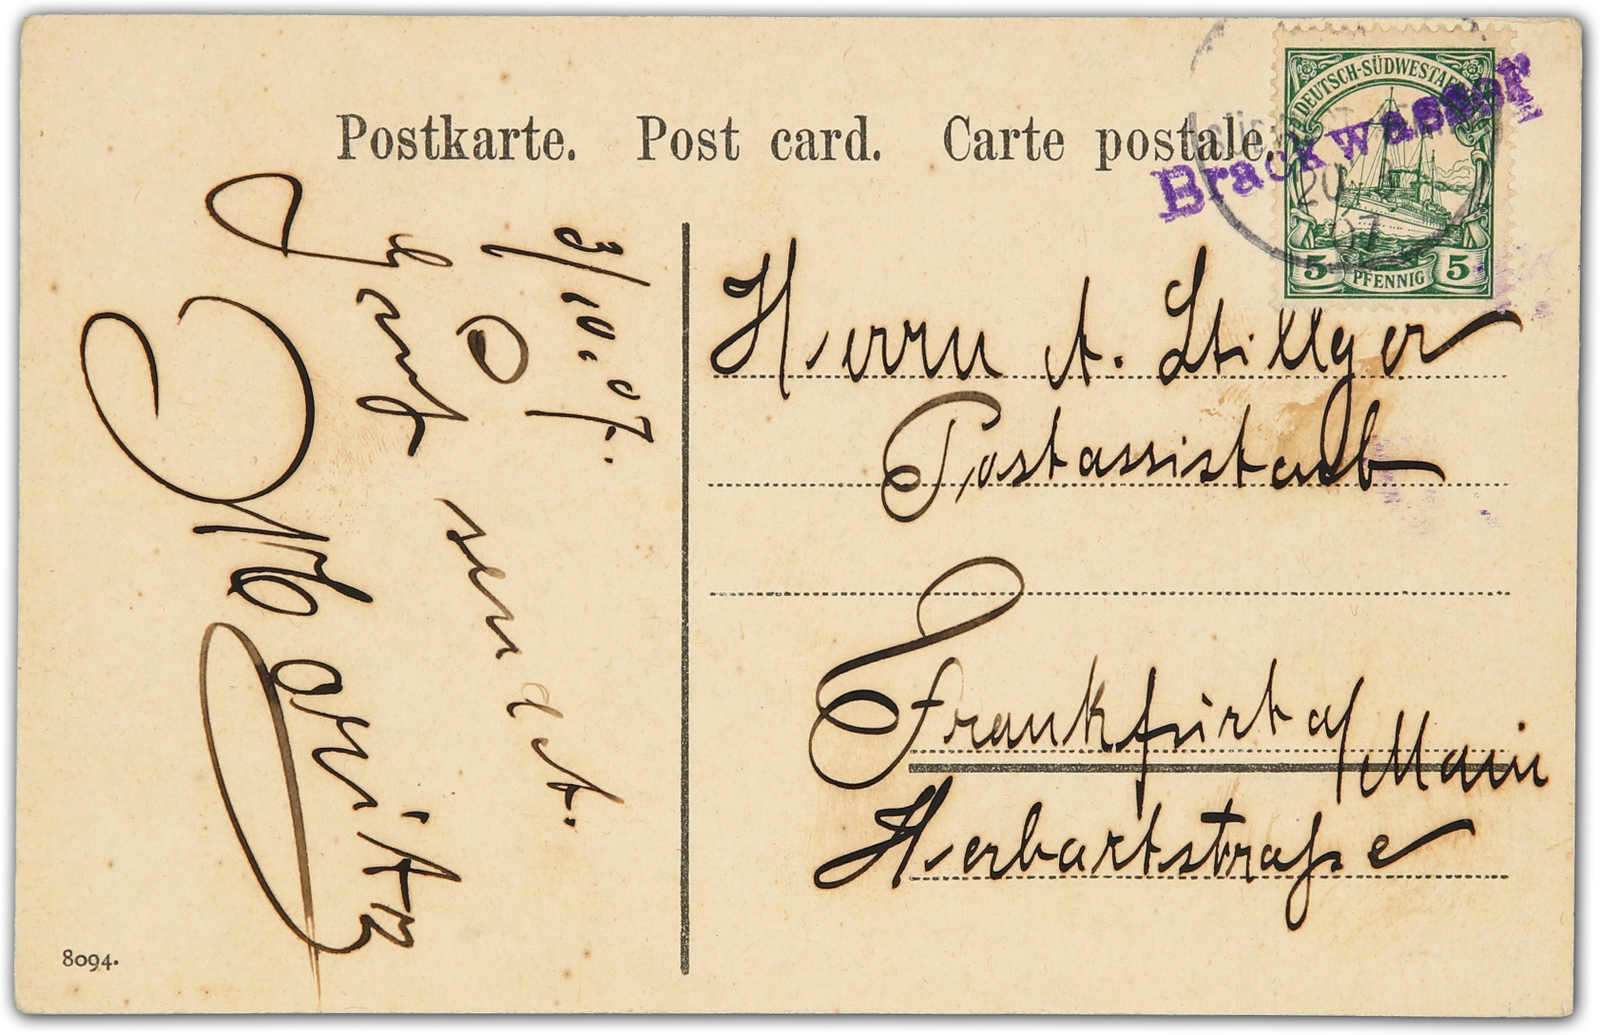 Postkarte. Post card. Carte postale.
DEUTSCH-SÜDWESTAFRIKA
5 PFENNIG 5
Brackwasser
20
07
Herrn A. Stillger
Postassistent
Frankfurt a/Main
Herbartstraße
3/10.07.
Gruß sendet.
Moritz
8094.